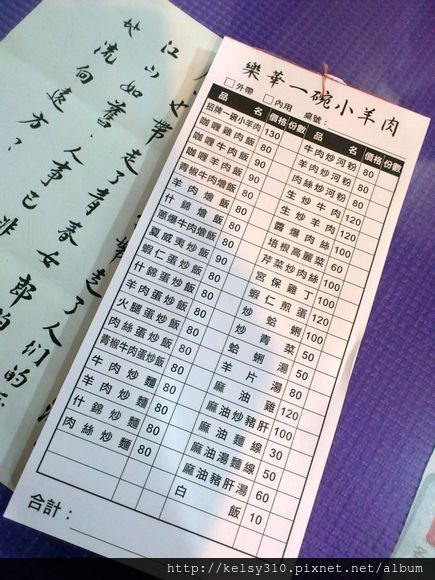 樂華一碗小羊肉
□外帶 □內用 桌號:
品名 價格 份數
招牌一碗小羊肉 130
咖喱雞肉飯 80
咖喱牛肉飯 90
咖喱羊肉飯 80
青椒牛肉燴飯 90
羊肉燴飯 80
什錦燴飯 80
蔥爆牛肉燴飯 90
夏威夷炒飯 90
蝦仁蛋炒飯 90
什錦蛋炒飯 80
羊肉蛋炒飯 80
火腿蛋炒飯 80
肉絲蛋炒飯 80
青椒牛肉蛋炒飯 90
牛肉炒麵 80
羊肉炒麵 80
什錦炒麵 80
肉絲炒麵 80
品名 價格 份數
牛肉炒河粉 80
羊肉炒河粉 80
肉絲炒河粉 80
生炒牛肉 120
生炒羊肉 120
醬爆肉絲 100
培根高麗菜 60
芹菜炒肉絲 100
宮保雞丁 100
蝦仁煎蛋 120
炒蛤蜊 100
炒青菜 50
蛤蜊湯 50
羊片湯 80
麻油雞 120
麻油炒豬肝 100
麻油麵線 30
麻油湯麵線 50
麻油豬肝湯 60
白飯 10
合計:
江山如舊,走了青春女郎的
流向遠方,人事已非
http://kelsy310.pixnet.net/album